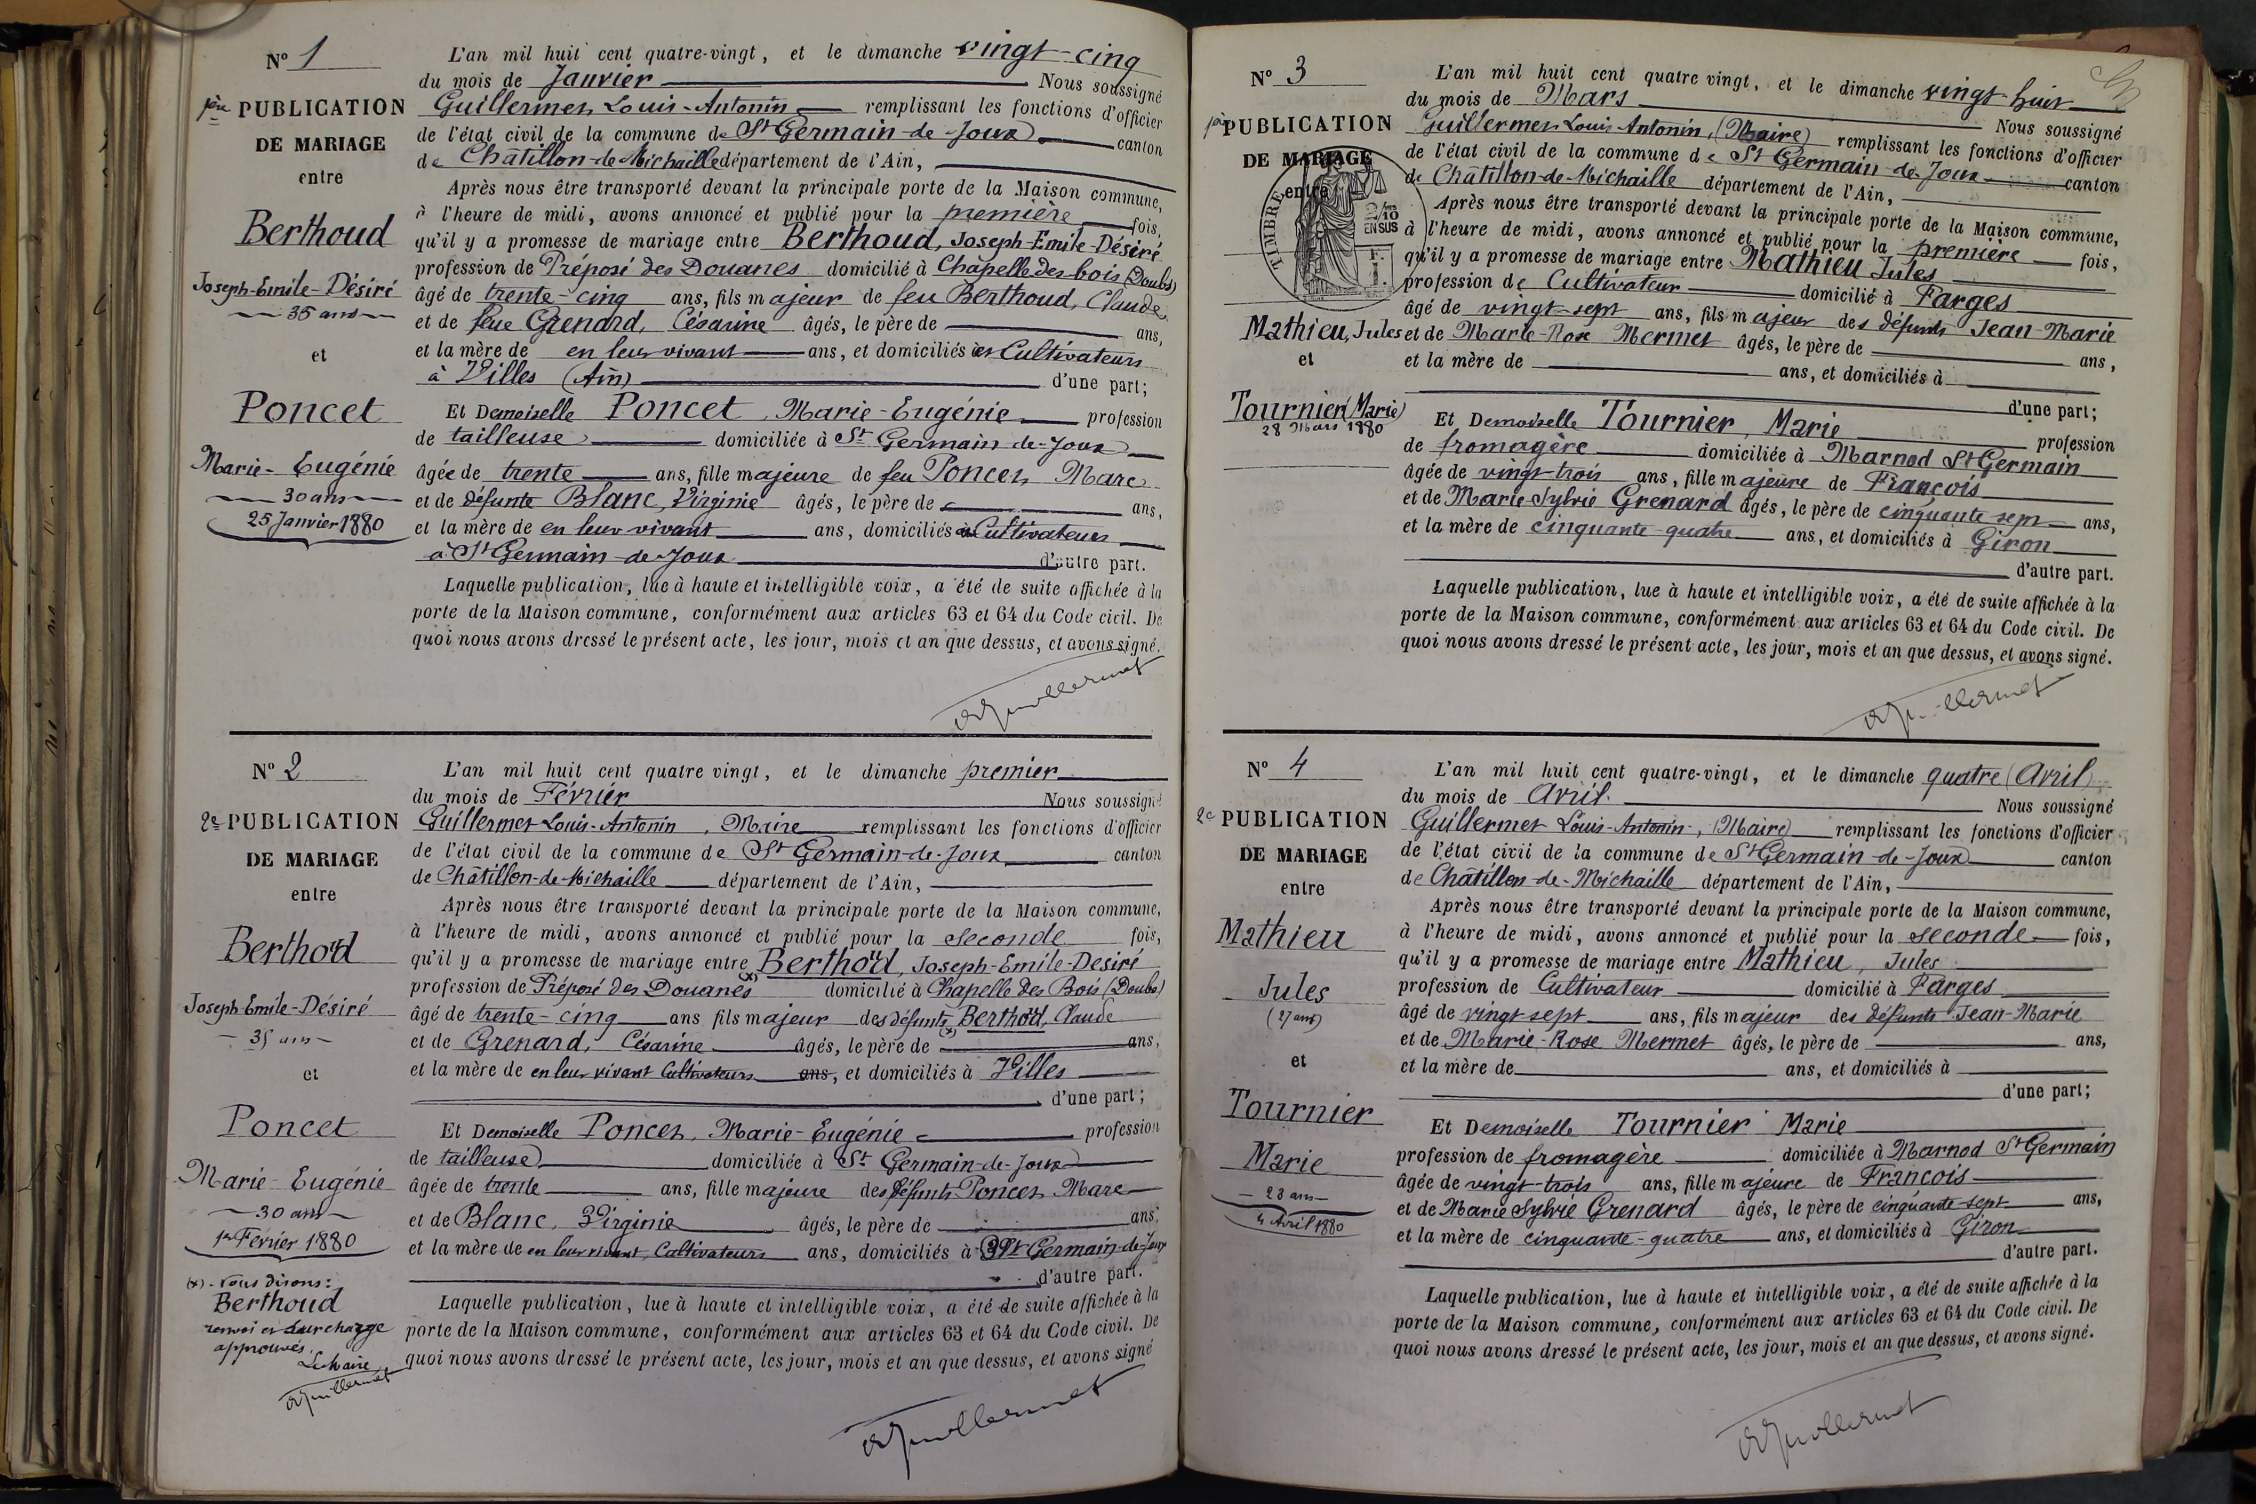 Nº 1
1ère PUBLICATION
DE MARIAGE
entre
Berthoud
Joseph-Emile-Désiré
35 ans
et
Poncet
Marie-Eugénie
30 ans
25 Janvier 1880
L'an mil huit cent quatre-vingt, et le dimanche vingt-cinq
du mois de Janvier Nous soussigné
Guillermet Louis-Antonin remplissant les fonctions d'officier
de l'état civil de la commune de St Germain-de-Joux canton
de Châtillon-de-Michaille département de l'Ain,
Après nous être transporté devant la principale porte de la Maison commune,
à l'heure de midi, avons annoncé et publié pour la première fois,
qu'il y a promesse de mariage entre Berthoud, Joseph-Emile-Désiré
profession de Préposé des Douanes domicilié à Chapelle des bois (Doubs)
âgé de trente-cinq ans, fils majeur de feu Berthoud, Claude
et de feue Grenard, Césarine âgés, le père de ans,
et la mère de en leur vivant ans, et domiciliés à Cultivateurs
à Villes (Ain) d'une part;
Et Demoiselle Poncet, Marie-Eugénie profession
de tailleuse domiciliée à St Germain-de-Joux
âgée de trente ans, fille majeure de feu Poncet, Marc
et de défunte Blanc, Virginie âgés, le père de ans,
et la mère de en leur vivant ans, domiciliés à Cultivateurs
à St Germain-de-Joux d'autre part.
Laquelle publication, lue à haute et intelligible voix, a été de suite affichée à la
porte de la Maison commune, conformément aux articles 63 et 64 du Code civil. De
quoi nous avons dressé le présent acte, les jour, mois et an que dessus, et avons signé.
Guillermet
Nº 2
2e PUBLICATION
DE MARIAGE
entre
Berthoud
Joseph-Emile-Désiré
35 ans
et
Poncet
Marie-Eugénie
30 ans
1er Février 1880
(x) - Nous disons:
Berthoud
renvoi et surcharge
approuvés.
Le Maire,
Guillermet
L'an mil huit cent quatre vingt, et le dimanche premier
du mois de Février Nous soussigné
Guillermet Louis-Antonin, Maire remplissant les fonctions d'officier
de l'état civil de la commune de St Germain-de-Joux canton
de Châtillon-de-Michaille département de l'Ain,
Après nous être transporté devant la principale porte de la Maison commune,
à l'heure de midi, avons annoncé et publié pour la seconde fois,
qu'il y a promesse de mariage entre Berthoud, Joseph-Emile-Desiré
profession de Préposé des Douanes (x) domicilié à Chapelle des Bois (Doubs)
âgé de trente-cinq ans fils majeur des défunts Berthoud, Claude
et de Grenard, Césarine âgés, le père de (x) ans,
et la mère de en leur vivant Cultivateurs ans, et domiciliés à Villes
d'une part;
Et Demoiselle Poncet, Marie-Eugénie profession
de tailleuse domiciliée à St Germain-de-Joux
âgée de trente ans, fille majeure des défunts Poncet Marc
et de Blanc, Virginie âgés, le père de ans,
et la mère de en leur vivant, Cultivateurs ans, domiciliés à St Germain-de-Joux
d'autre part.
Laquelle publication, lue à haute et intelligible voix, a été de suite affichée à la
porte de la Maison commune, conformément aux articles 63 et 64 du Code civil. De
quoi nous avons dressé le présent acte, les jour, mois et an que dessus, et avons signé
Guillermet
Nº 3
1ère PUBLICATION
DE MARIAGE
entre
TIMBRE
2/10
EN SUS
Mathieu, Jules
et
Tournier (Marie)
28 Mars 1880
L'an mil huit cent quatre vingt, et le dimanche vingt-huit
du mois de Mars Nous soussigné
Guillermet Louis-Antonin, (Maire) remplissant les fonctions d'officier
de l'état civil de la commune de St Germain-de-Joux canton
de Châtillon-de-Michaille département de l'Ain,
Après nous être transporté devant la principale porte de la Maison commune,
à l'heure de midi, avons annoncé et publié pour la première fois,
qu'il y a promesse de mariage entre Mathieu Jules
profession de Cultivateur domicilié à Farges
âgé de vingt-sept ans, fils majeur des défunts Jean-Marie
et de Marie-Rose Mermet âgés, le père de ans,
et la mère de ans, et domiciliés à
d'une part;
Et Demoiselle Tournier, Marie profession
de fromagère domiciliée à Marnod St Germain
âgée de vingt-trois ans, fille majeure de François
et de Marie-Sylvie Grenard âgés, le père de cinquante sept ans,
et la mère de cinquante-quatre ans, et domiciliés à Giron
d'autre part.
Laquelle publication, lue à haute et intelligible voix, a été de suite affichée à la
porte de la Maison commune, conformément aux articles 63 et 64 du Code civil. De
quoi nous avons dressé le présent acte, les jour, mois et an que dessus, et avons signé.
Guillermet
Nº 4
2e PUBLICATION
DE MARIAGE
entre
Mathieu
Jules
(27 ans)
et
Tournier
Marie
23 ans
4 Avril 1880
L'an mil huit cent quatre-vingt, et le dimanche quatre (Avril)
du mois de Avril. Nous soussigné
Guillermet Louis-Antonin, (Maire) remplissant les fonctions d'officier
de l'état civil de la commune de St Germain-de-Joux canton
de Châtillon-de-Michaille département de l'Ain,
Après nous être transporté devant la principale porte de la Maison commune,
à l'heure de midi, avons annoncé et publié pour la seconde fois,
qu'il y a promesse de mariage entre Mathieu, Jules
profession de Cultivateur domicilié à Farges
âgé de vingt sept ans, fils majeur des défunts Jean-Marie
et de Marie-Rose Mermet âgés, le père de ans,
et la mère de ans, et domiciliés à
d'une part;
Et Demoiselle Tournier Marie
profession de fromagère domiciliée à Marnod St Germain
âgée de vingt-trois ans, fille majeure de François
et de Marie Sylvie Grenard âgés, le père de cinquante-sept ans,
et la mère de cinquante-quatre ans, et domiciliés à Giron
d'autre part.
Laquelle publication, lue à haute et intelligible voix, a été de suite affichée à la
porte de la Maison commune, conformément aux articles 63 et 64 du Code civil. De
quoi nous avons dressé le présent acte, les jour, mois et an que dessus, et avons signé.
Guillermet